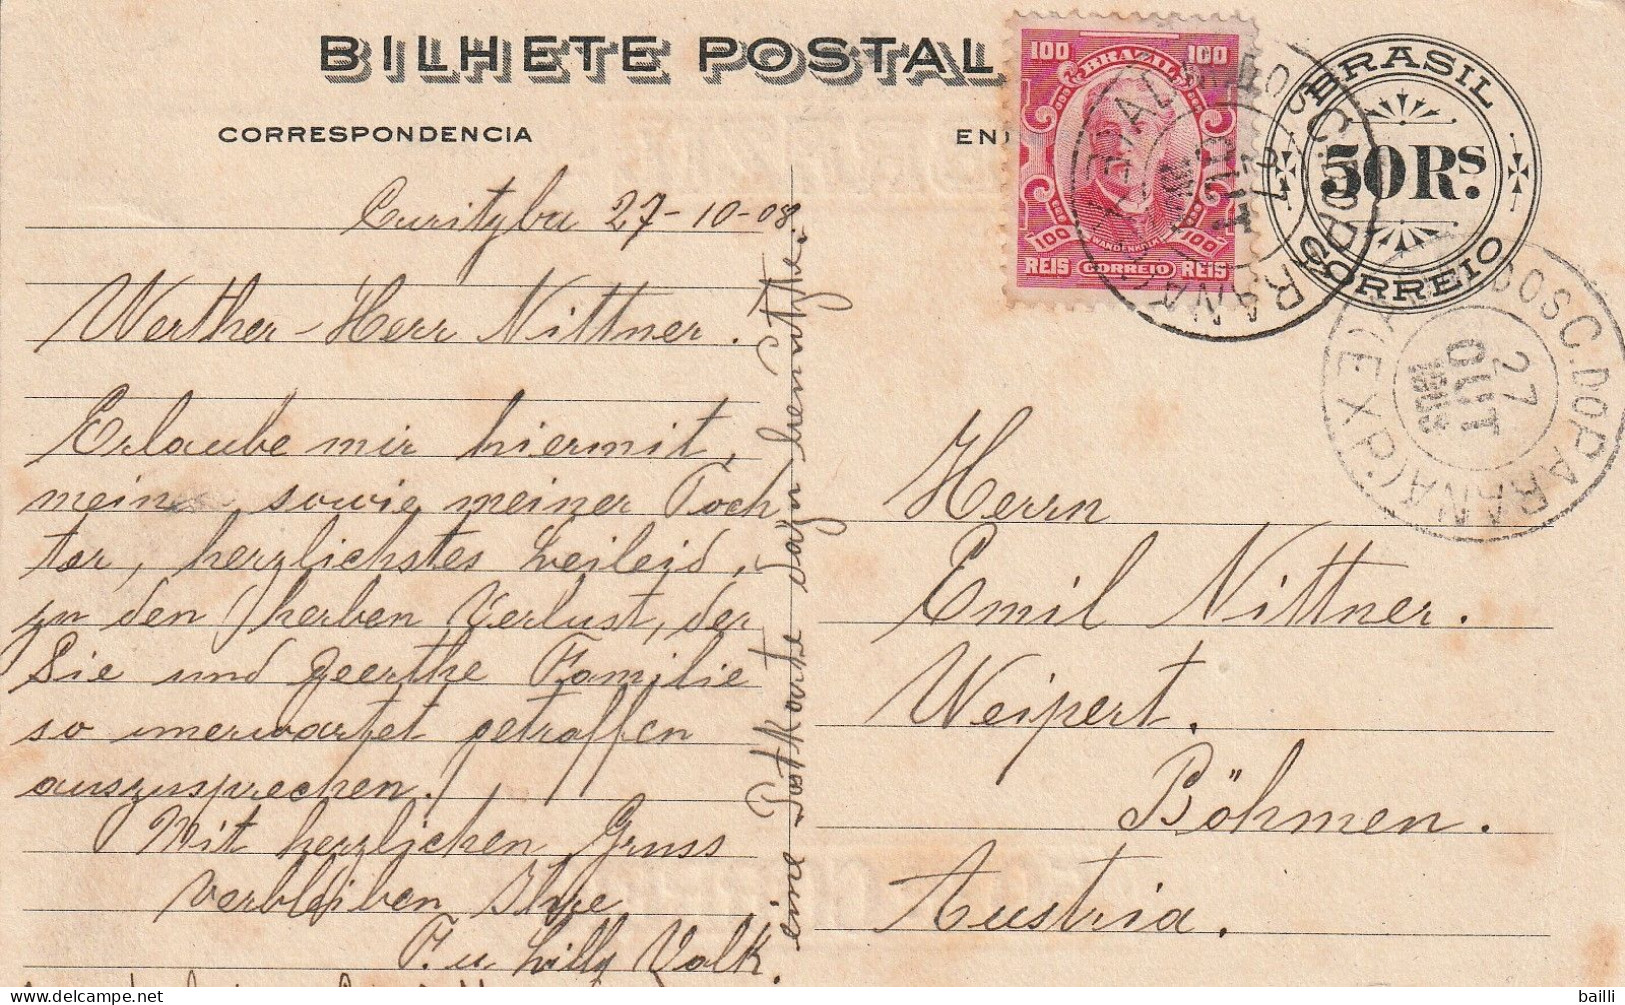 BILHETE POSTAL
CORRESPONDENCIA
Curityba 27-10-08.
Werther Herr Nittner.
Erlaube mir hiermit,
meine sowie meiner Toch
ter, herzlichstes Beileid,
zu den herben Verlust, der
Sie und geerthe Familie
so unerwartet getroffen
auszusprechen.
Mit herzlichen Gruss
verbleiben Ihre
F. u Lilly Volk.
eine Postkarte dazu benutze.
100 100
BRAZIL
WANDENKOLK
100 100
REIS CORREIO REIS
BRASIL
50 Rs.
CORREIO
DOS C. DO PARANA (EXP.)
27
OUT
1908
Herrn
Emil Nittner.
Weipert.
Böhmen.
Austria.
bailli